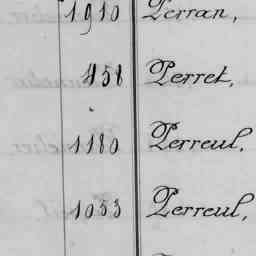 1910 Perran,
458 Perret,
1180 Perreul,
1053 Perreul,